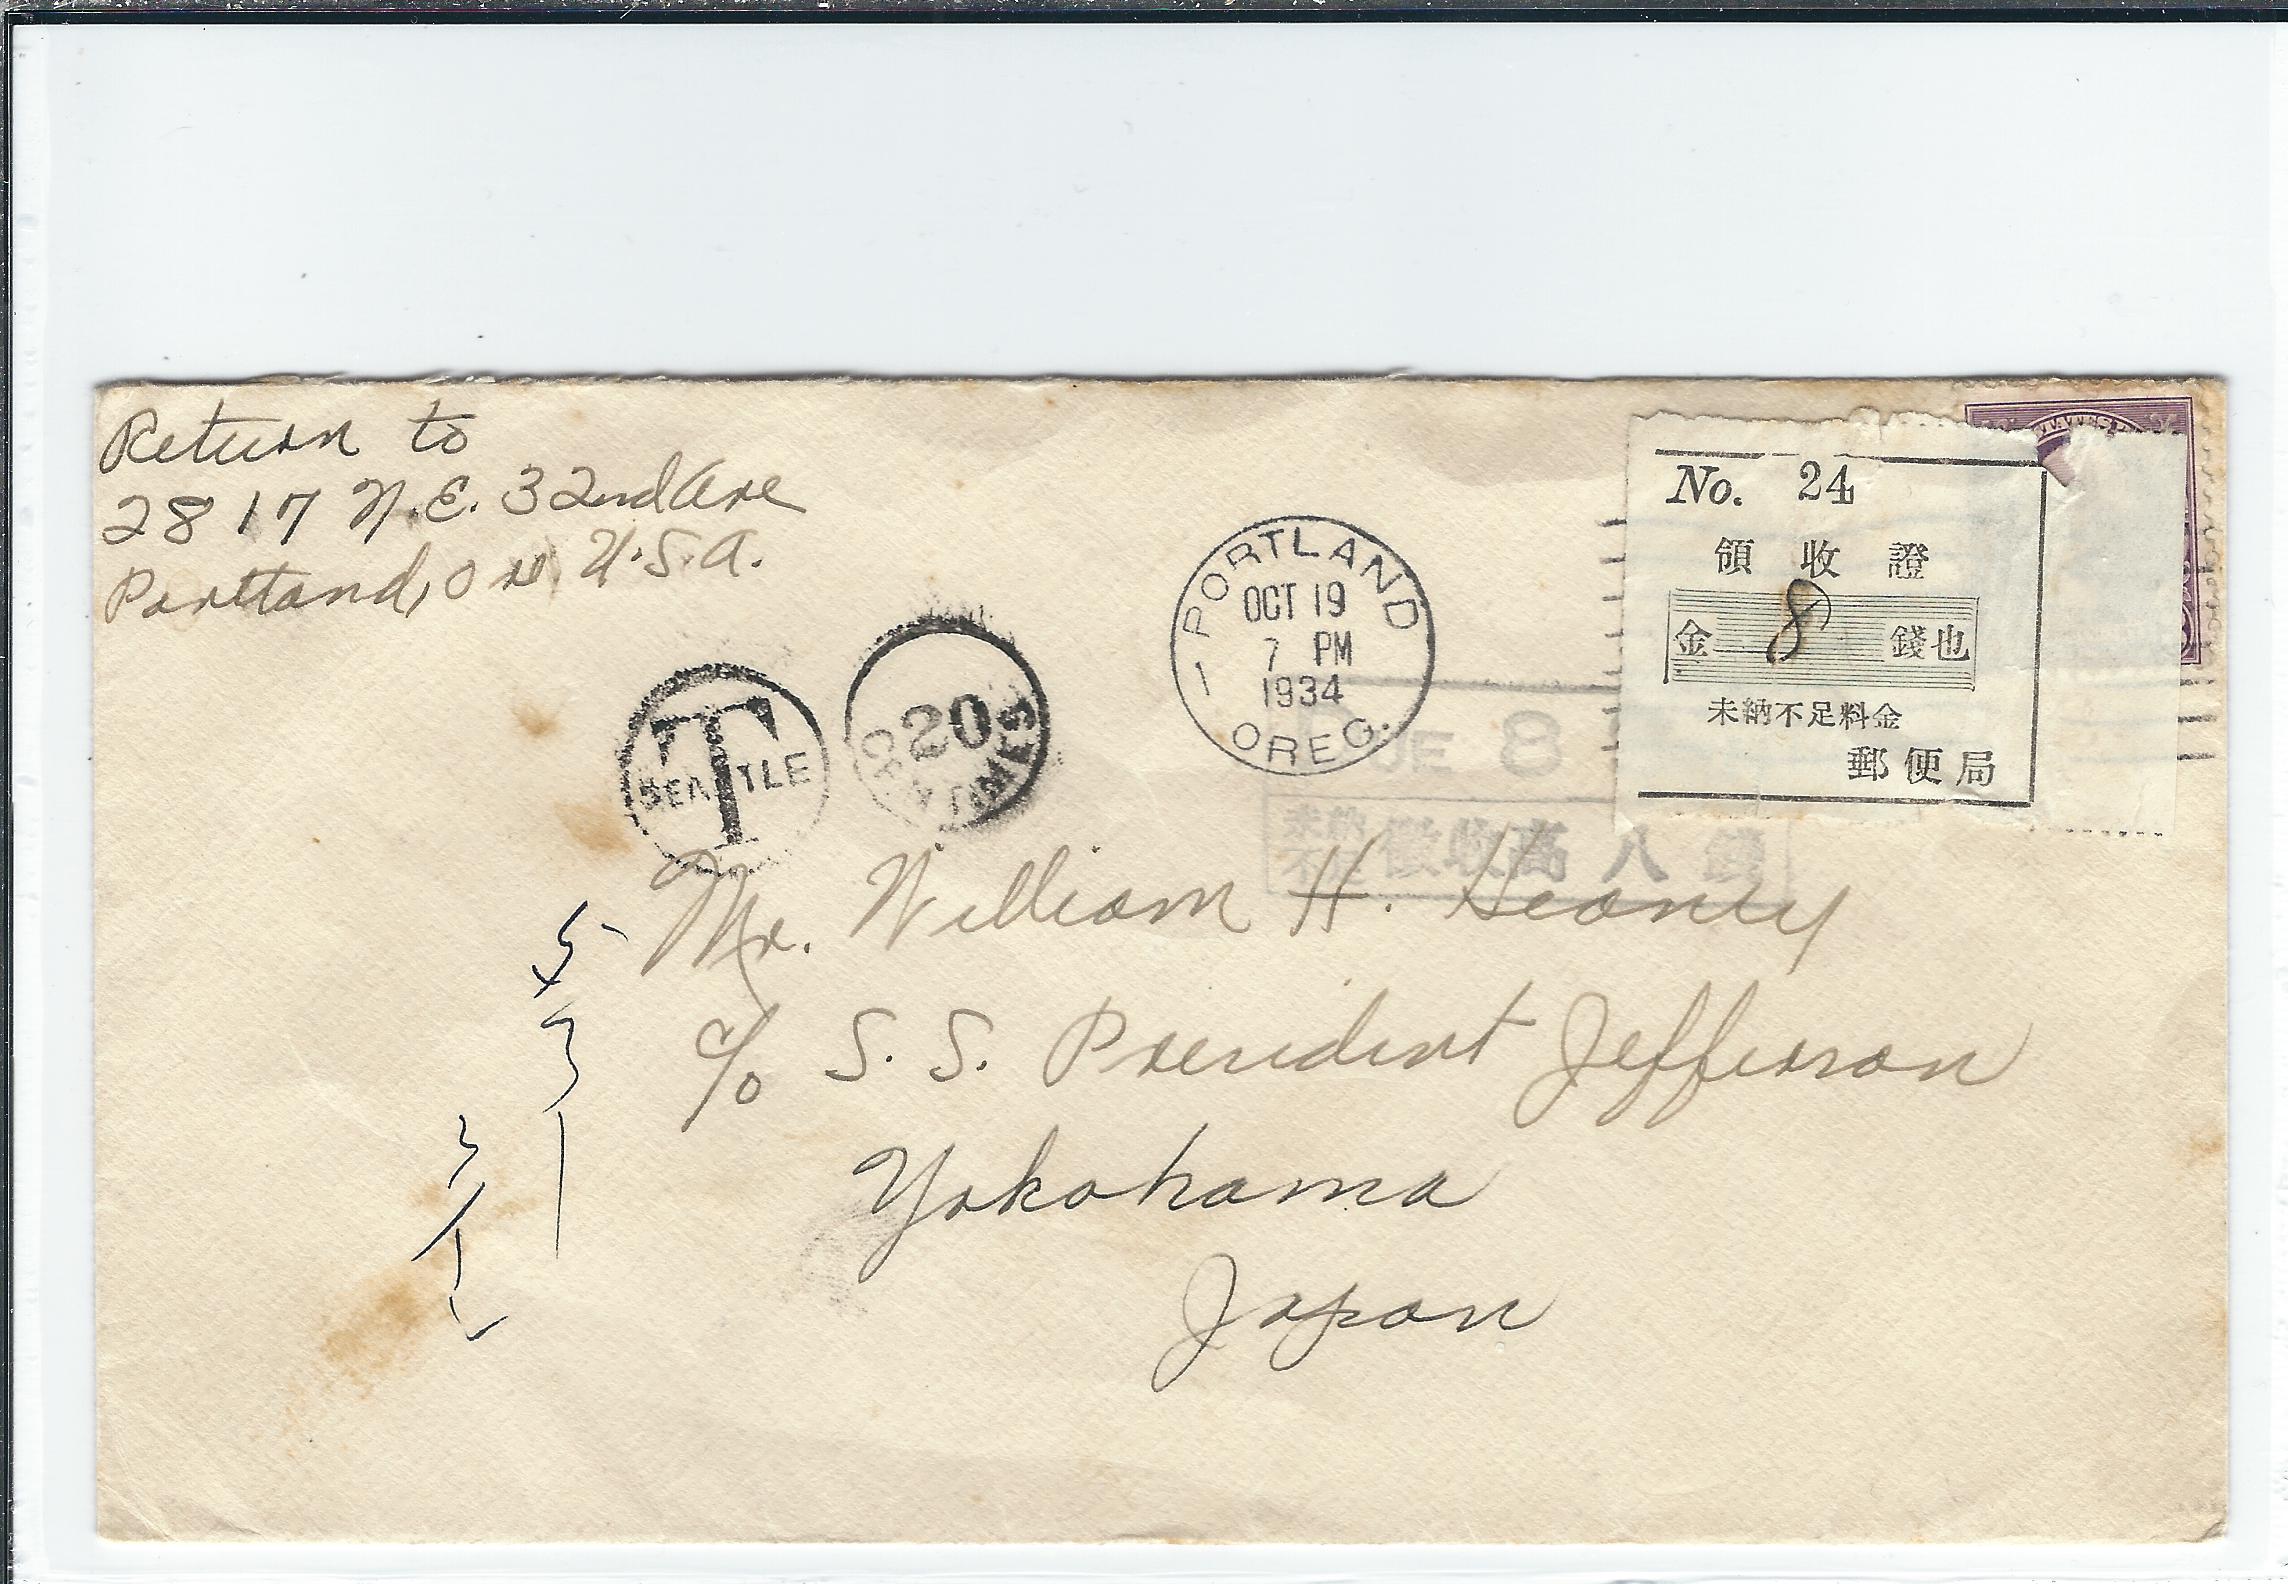 Return to
2817 N.E. 32nd Ave
Portland, Ore. U.S.A.
PORTLAND
OCT 19
7 PM
1934
OREG.
1
No. 24
領收證
金 8 錢也
未納不足料金
郵便局
T
SEATTLE
20
CENTIMES
DUE 8
未納
不足
徵收高八錢
Mr. William H. Heaney
c/o S. S. President Jefferson
Yokohama
Japan